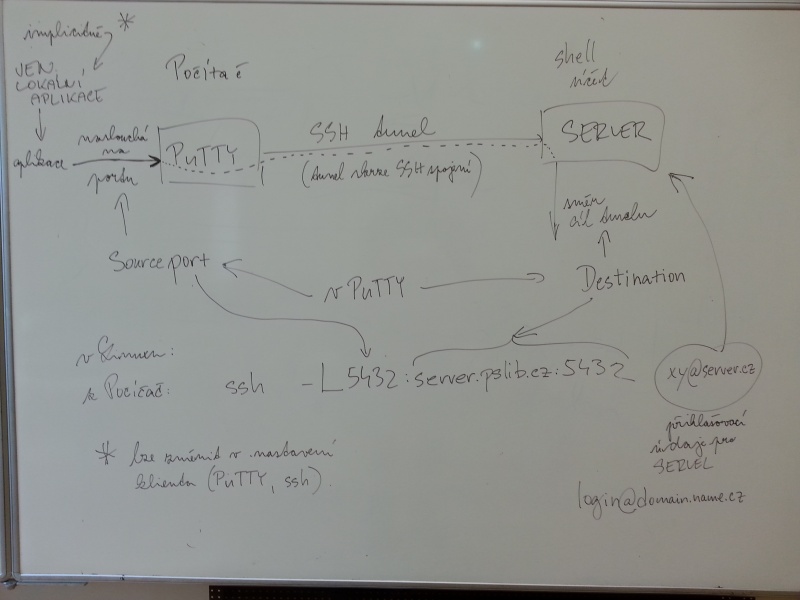 implicitně *
JEN
LOKÁLNÍ
APLIKACE
Počítač
shell
účet
aplikace
naslouchá
na
portu
PuTTY
SSH tunel
(tunel skrze SSH spojení)
SERVER
směr
cíl tunelu
Source port
v PuTTY
Destination
v
k Počítač:
ssh -L 5432:server.pslib.cz:5432
xy@server.cz
přihlašovací
údaje pro
SERVER
* lze změnit v nastavení
klienta (PuTTY, ssh).
login@domain.name.cz